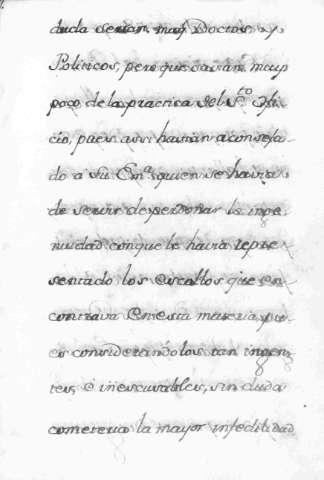 duda serian muy Doctos, y
Politicos, pero que savian muy
poco de la practica del S.to Ofi-
cio, pues assi havian aconseja-
do a Su Em.a quien se havia
de servir de perdonar la inge-
nuidad conque le havia repre-
sentado los escollos que en-
contrava en esta materia pu-
es considerandolos tan ingen-
tes, è inescusables, sin duda
cometeria la mayor infedilidad